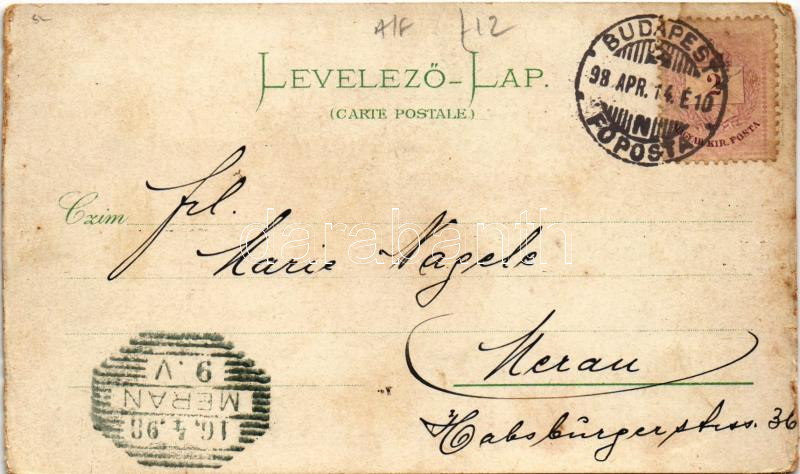 A/F £12
LEVELEZŐ-LAP.
(CARTE POSTALE)
BUDAPEST
98 APR. 14. É10
N
FŐPOSTA
2
MAGYAR KIR. POSTA
Czim
Frl.
Marie Nagele
Meran
Habsburgerstrss. 36
darabanth
16.4.98
MERAN
9. V